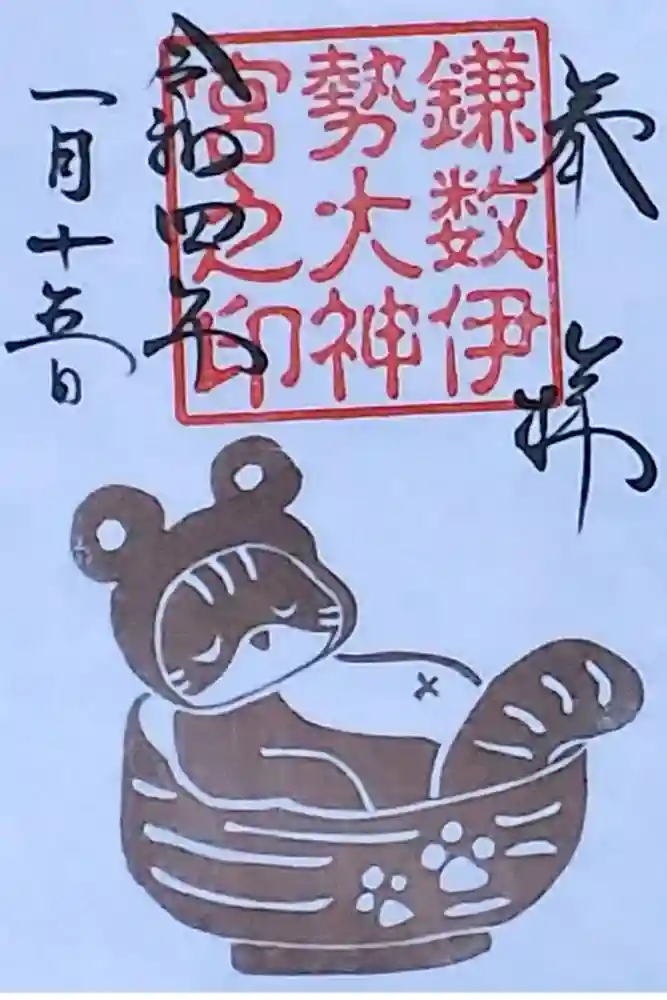 奉拝
鎌数伊
勢大神
宮之印
令和四年
一月十五日